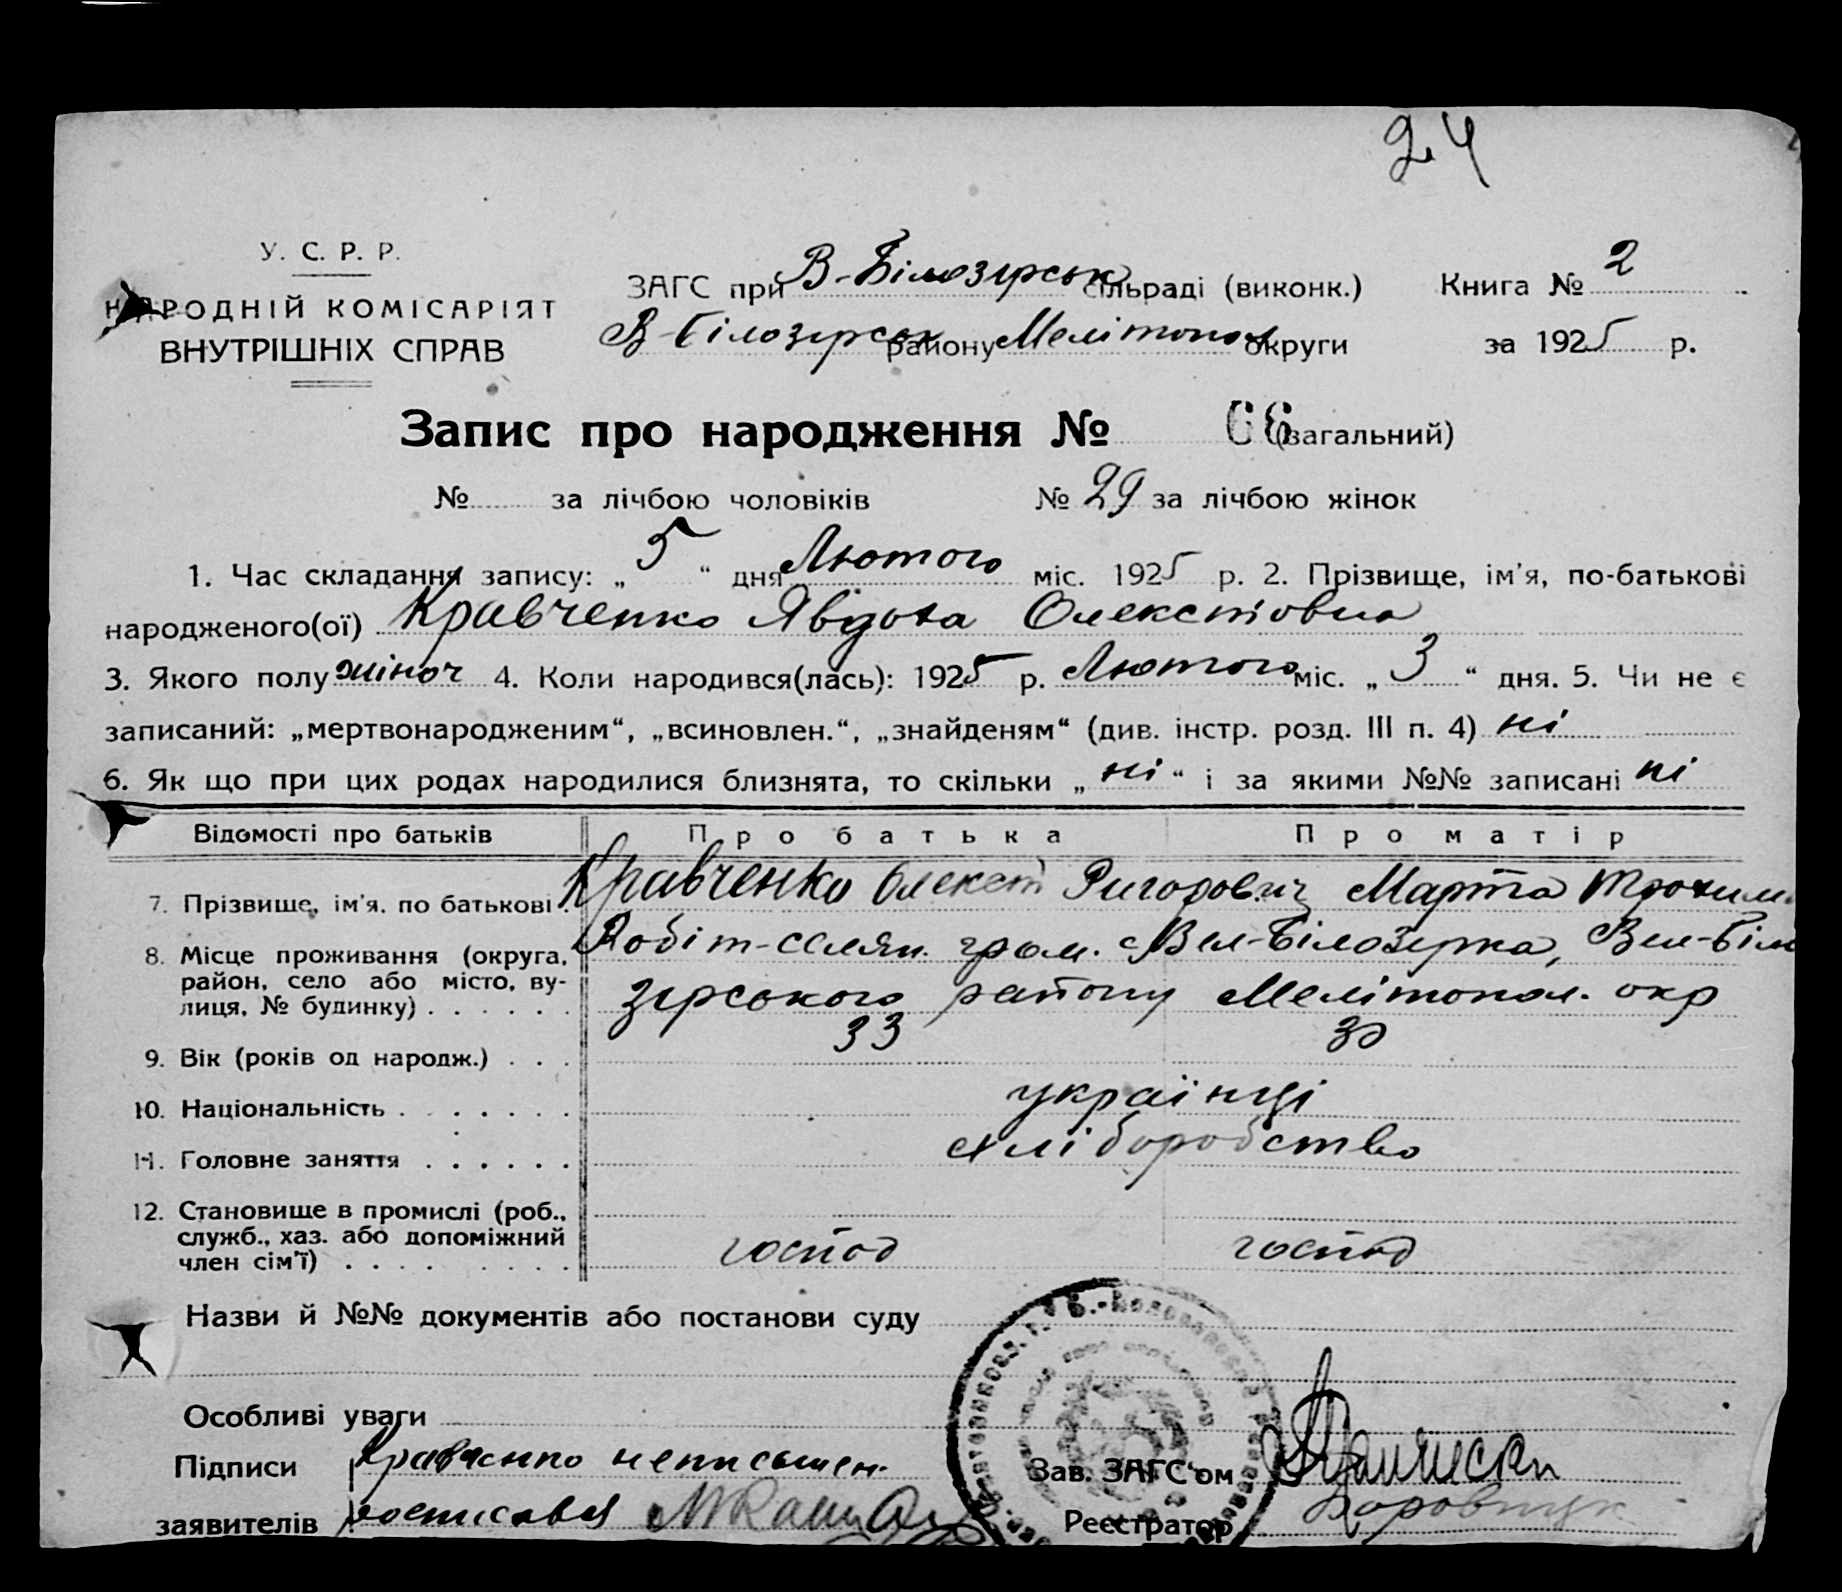 24
У. С. Р. Р.
НАРОДНІЙ КОМІСАРІЯТ
ВНУТРІШНІХ СПРАВ
ЗАГС при В-Білозірськ сільраді (виконк.) Книга № 2
В-Білозірськ району Мелітопол округи за 1925 р.
Запис про народження № 66 (загальний)
№ за лічбою чоловіків № 29 за лічбою жінок
1. Час складання запису: „5“ дня Лютого міс. 1925 р. 2. Прізвище, ім'я, по-батькові
народженого(ої) Кравченко Явдоха Олекстовна
3. Якого полу жіноч 4. Коли народився(лась): 1925 р. Лютого міс. „3“ дня. 5. Чи не є
записаний: „мертвонародженим“, „всиновлен.“, „знайденям“ (див. інстр. розд. III п. 4) ні
6. Як що при цих родах народилися близнята, то скільки „ні“ і за якими №№ записані ні
Відомості про батьків Про батька Про матір
7. Прізвище, ім'я. по батькові . Кравченко Олекст Ригорович Марта Трохим
8. Місце проживання (округа, Робіт-селян. гром. Вел-Білозірка, Вел-Біло
район, село або місто, ву-
лиця, № будинку) . . . . . . зірського району Мелітопол. окр
9. Вік (років од народж.) . . . 33 30
10. Національність . . . . . . . українці
11. Головне заняття . . . . . . хліборобство
12. Становище в промислі (роб.,
служб., хаз. або допоміжний
член сім'ї) . . . . . . . . . господ господ
Назви й №№ документів або постанови суду
Особливі уваги
Підписи Кравченко неписьмен. Зав. ЗАГС'ом
заявителів росписався Реєстратор